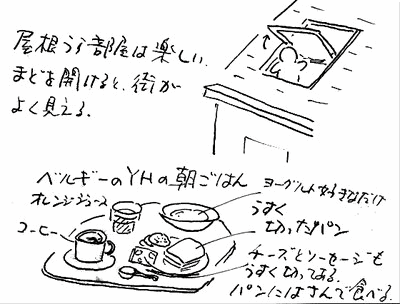 屋根うら部屋は楽しい
まどを開けると、街が
よく見える.
ベルギーのYHの朝ごはん
オレンジジュース
コーヒー
ヨーグルト好きなだけ
うすく
切ったパン
チーズとソーセージも
うすく切ってある.
パンにはさんで食べる.